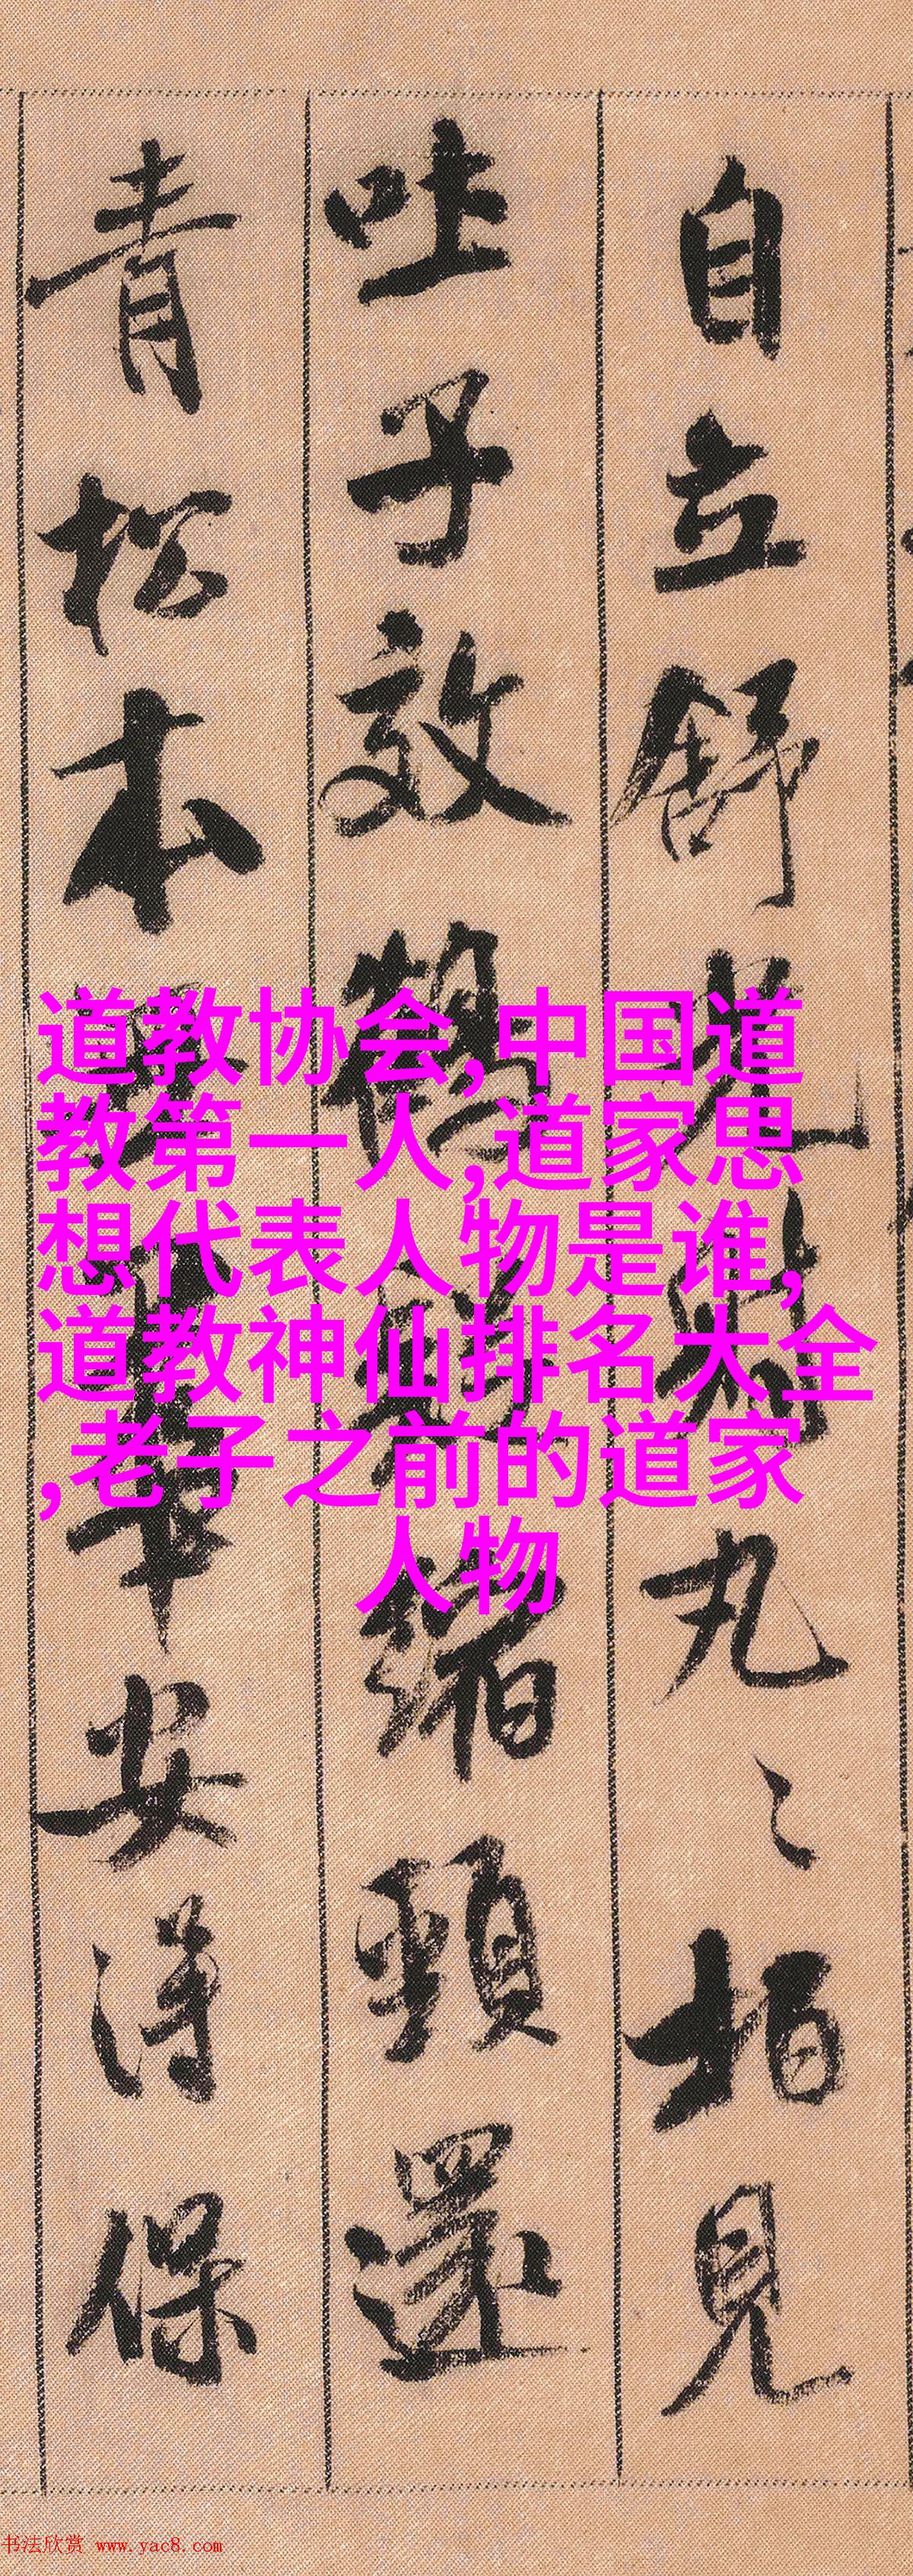 自立舒光丸〻柏見
吐子效鶴縮頸還
青松本華安得保
道教协会,中国道
教第一人,道家思
想代表人物是谁,
道教神仙排名大全
,老子之前的道家
人物
书法欣赏 www.yac8.com